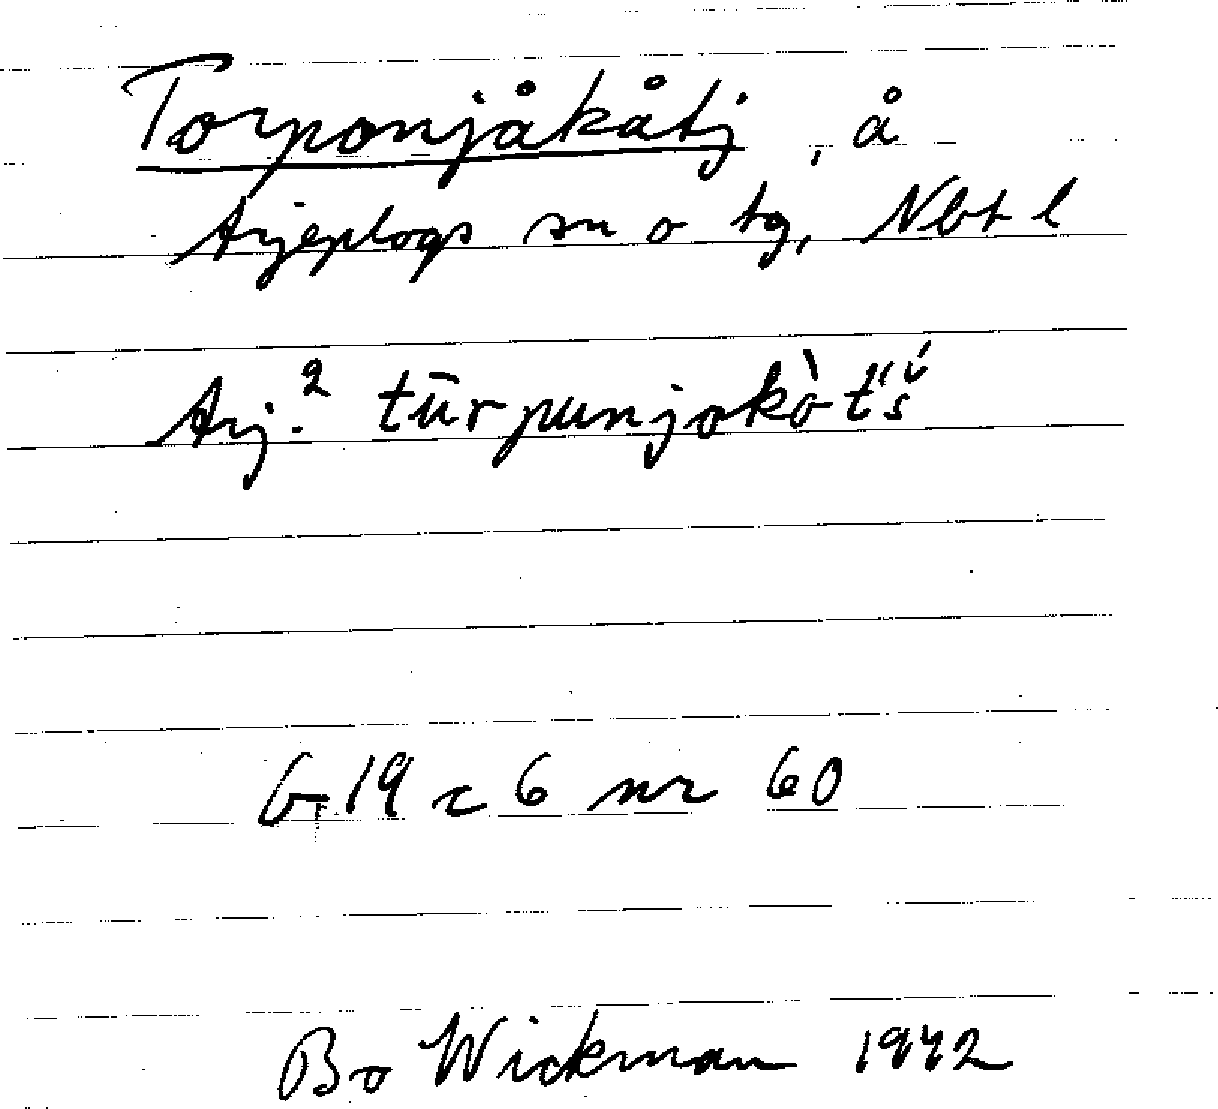 Torponjåkåtj, å
Arjeplogs sn o tg, Nbt l
Arj.² tūrpunjokò t́ś
G 19 c 6 nr 60
Bo Wickman 1942